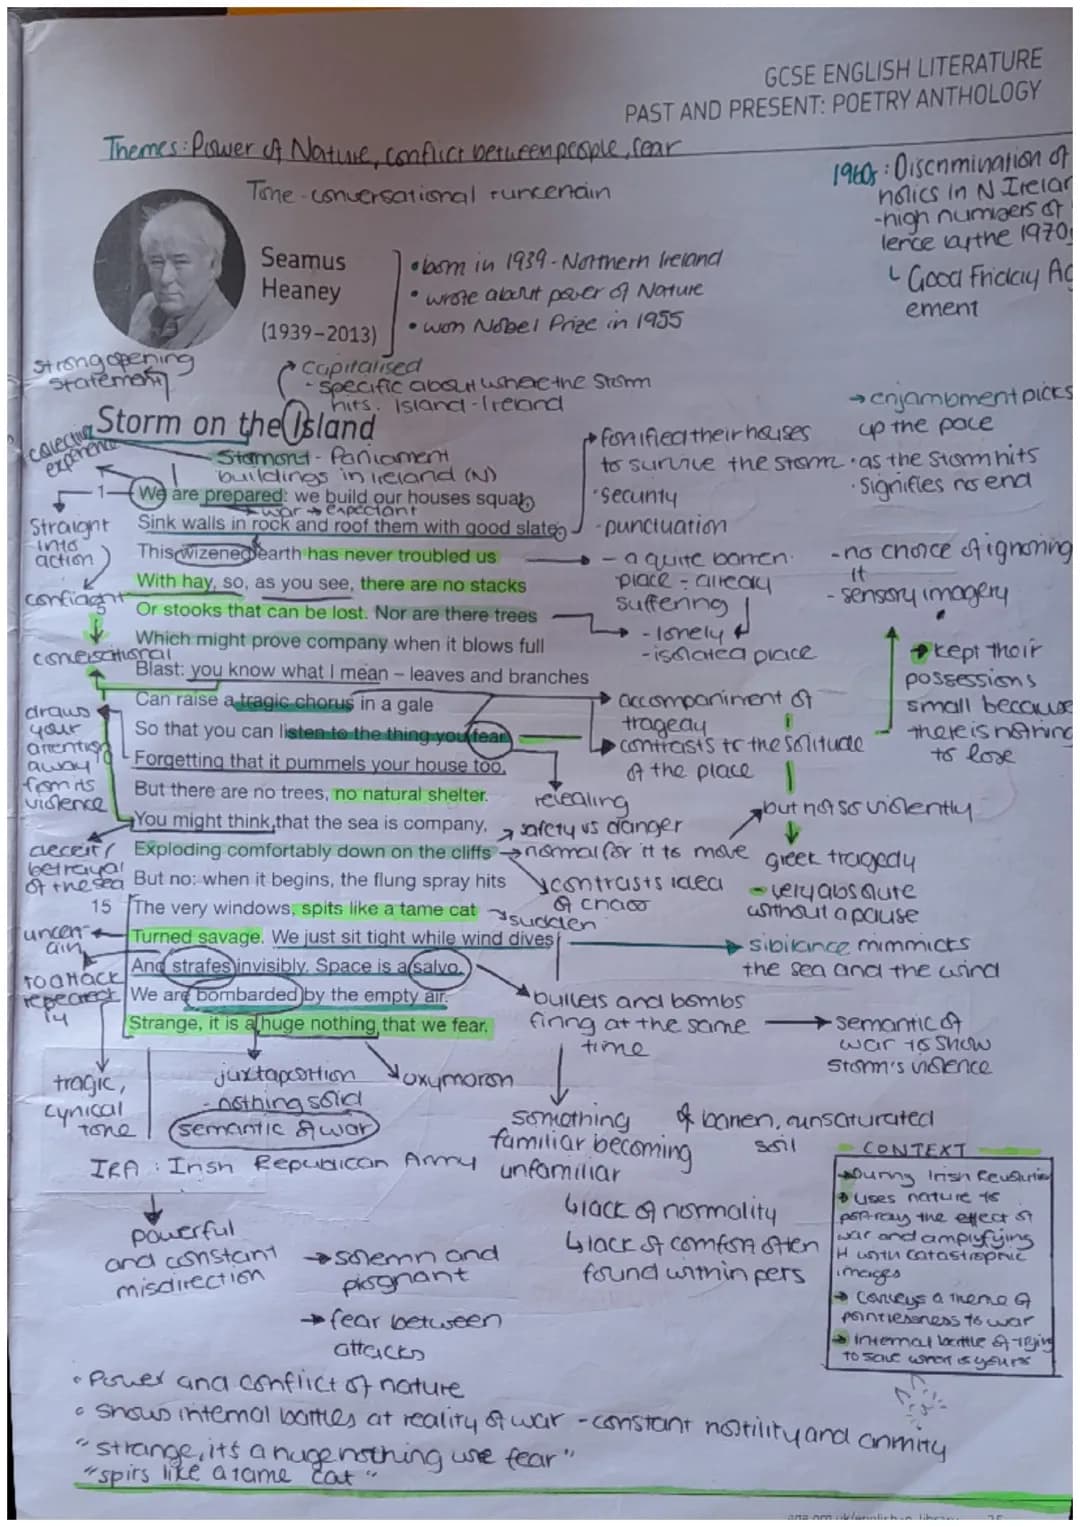 GCSE ENGLISH LITERATURE
PAST AND PRESENT: POETRY ANTHOLOGY
Themes: Power of Nature, conflict between people, fear
Tone - conversational + uncertain
1960s: Discrimination of
holics in N Irelar
-high numbers of
lence by the 1970s
↳ Good Friday Ag
ement
Seamus
Heaney
(1939–2013)
• born in 1939 - Northern Ireland
• wrote about power of Nature
• won Nobel Prize in 1955
strong opening
statement
capitalised
- specific about where the storm
hits. Island - Ireland
Storm on the Island
colective
experience
Stormont - Parliament
buildings in ireland (N)
→ fortified their houses
to survive the storm
· security
- punctuation
→ enjambment picks
up the pace
• as the storm hits
· signifies no end
1 We are prepared: we build our houses squat,
war → expectant
Sink walls in rock and roof them with good slate.
This wizened earth has never troubled us
With hay, so, as you see, there are no stacks
5 Or stooks that can be lost. Nor are there trees
Which might prove company when it blows full
Blast: you know what I mean – leaves and branches
Can raise a tragic chorus in a gale
So that you can listen to the thing you fear
Forgetting that it pummels your house too.
But there are no trees, no natural shelter.
You might think that the sea is company,
Exploding comfortably down on the cliffs
But no: when it begins, the flung spray hits
15 The very windows, spits like a tame cat
Turned savage. We just sit tight while wind dives
And strafes invisibly. Space is a salvo.
We are bombarded by the empty air.
Strange, it is a huge nothing that we fear.
Straight
into
action
confident
conversational
draws
your
attention
away
from its
violence
deceit /
betrayal
of the sea
uncert-
ain
to attack
repeated
ly
- a quite barren
place - already
suffering
- lonely
- isolated place
- no choice of ignoring
it
- sensory imagery
→ kept their
possessions
small because
there is nothing
to lose
accompaniment of
tragedy
contrasts to the solitude
of the place
relealing
safety vs danger
→ normal for it to move
but not so violently
contrasts idea
of chaos
greek tragedy
- very absolute
without a pause
sudden
sibilance mimmicks
the sea and the wind
bullets and bombs
firing at the same
time
→ semantic of
war to show
storm's violence
tragic,
cynical
tone
juxtaposition
- nothing solid
semantic of war
oxymoron
IRA : Irish Republican Army
something
familiar becoming
unfamiliar
↳ lack of normality
↳ lack of comfort often
found within pers
of barren, unsaturated
soil
powerful
and constant
misdirection
→ solemn and
piognant
→ fear between
attacks
CONTEXT
→ During Irish
→ uses nature to
portray the effect of
war and amplyfying
it with catastrophic
images
→ conveys a theme of
pointlessness to war
→ Internal battle of trying
to save what is yours
• Power and conflict of nature
• Shows internal battles at reality of war - constant hostility and anmity
"strange, it's a huge nothing we fear"
"spits like a tame cat"